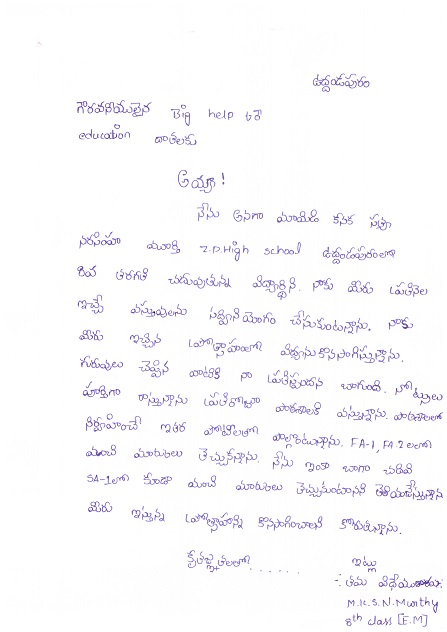 ఉద్దండపురం
గౌరవనీయులైన Big help for
education దాతలకు
అయ్యా!
నేను అనగా మాయిడి కనక సత్య
నరసింహ మూర్తి Z.P.High school ఉద్దండపురంలో
8వ తరగతి చదువుతున్న విద్యార్థిని. నాకు మీరు ప్రతినెల
ఇచ్చే వస్తువులను సద్వినియోగం చేసుకుంటున్నాను. నాకు
మీరు ఇచ్చిన ప్రోత్సాహంతో విద్యను కొనసాగిస్తున్నాను.
గురువులు చెప్పిన వాటికి నా ప్రతిస్పందన బాగుంది. నోట్సులు
పూర్తిగా రాస్తున్నాను ప్రతిరోజూ పాఠశాలకి వస్తున్నాను. పాఠశాలలో
నిర్వహించే ఇతర పోటీలలో పాల్గొంటున్నాను. FA-1, FA 2 లలో
మంచి మార్కులు తెచ్చుకున్నాను. నేను ఇంకా బాగా చదివి
SA-1లో కూడా మంచి మార్కులు తెచ్చుకుంటానని తెలియచేస్తున్నాను
మీరు ఇస్తున్న ప్రోత్సాహాన్ని కొనసాగించాలని కోరుతున్నాను.
కృతజ్ఞతలతో...... ఇట్లు
తమ విధేయుడు
M.K.S.N.Murthy
8th class [E.M]